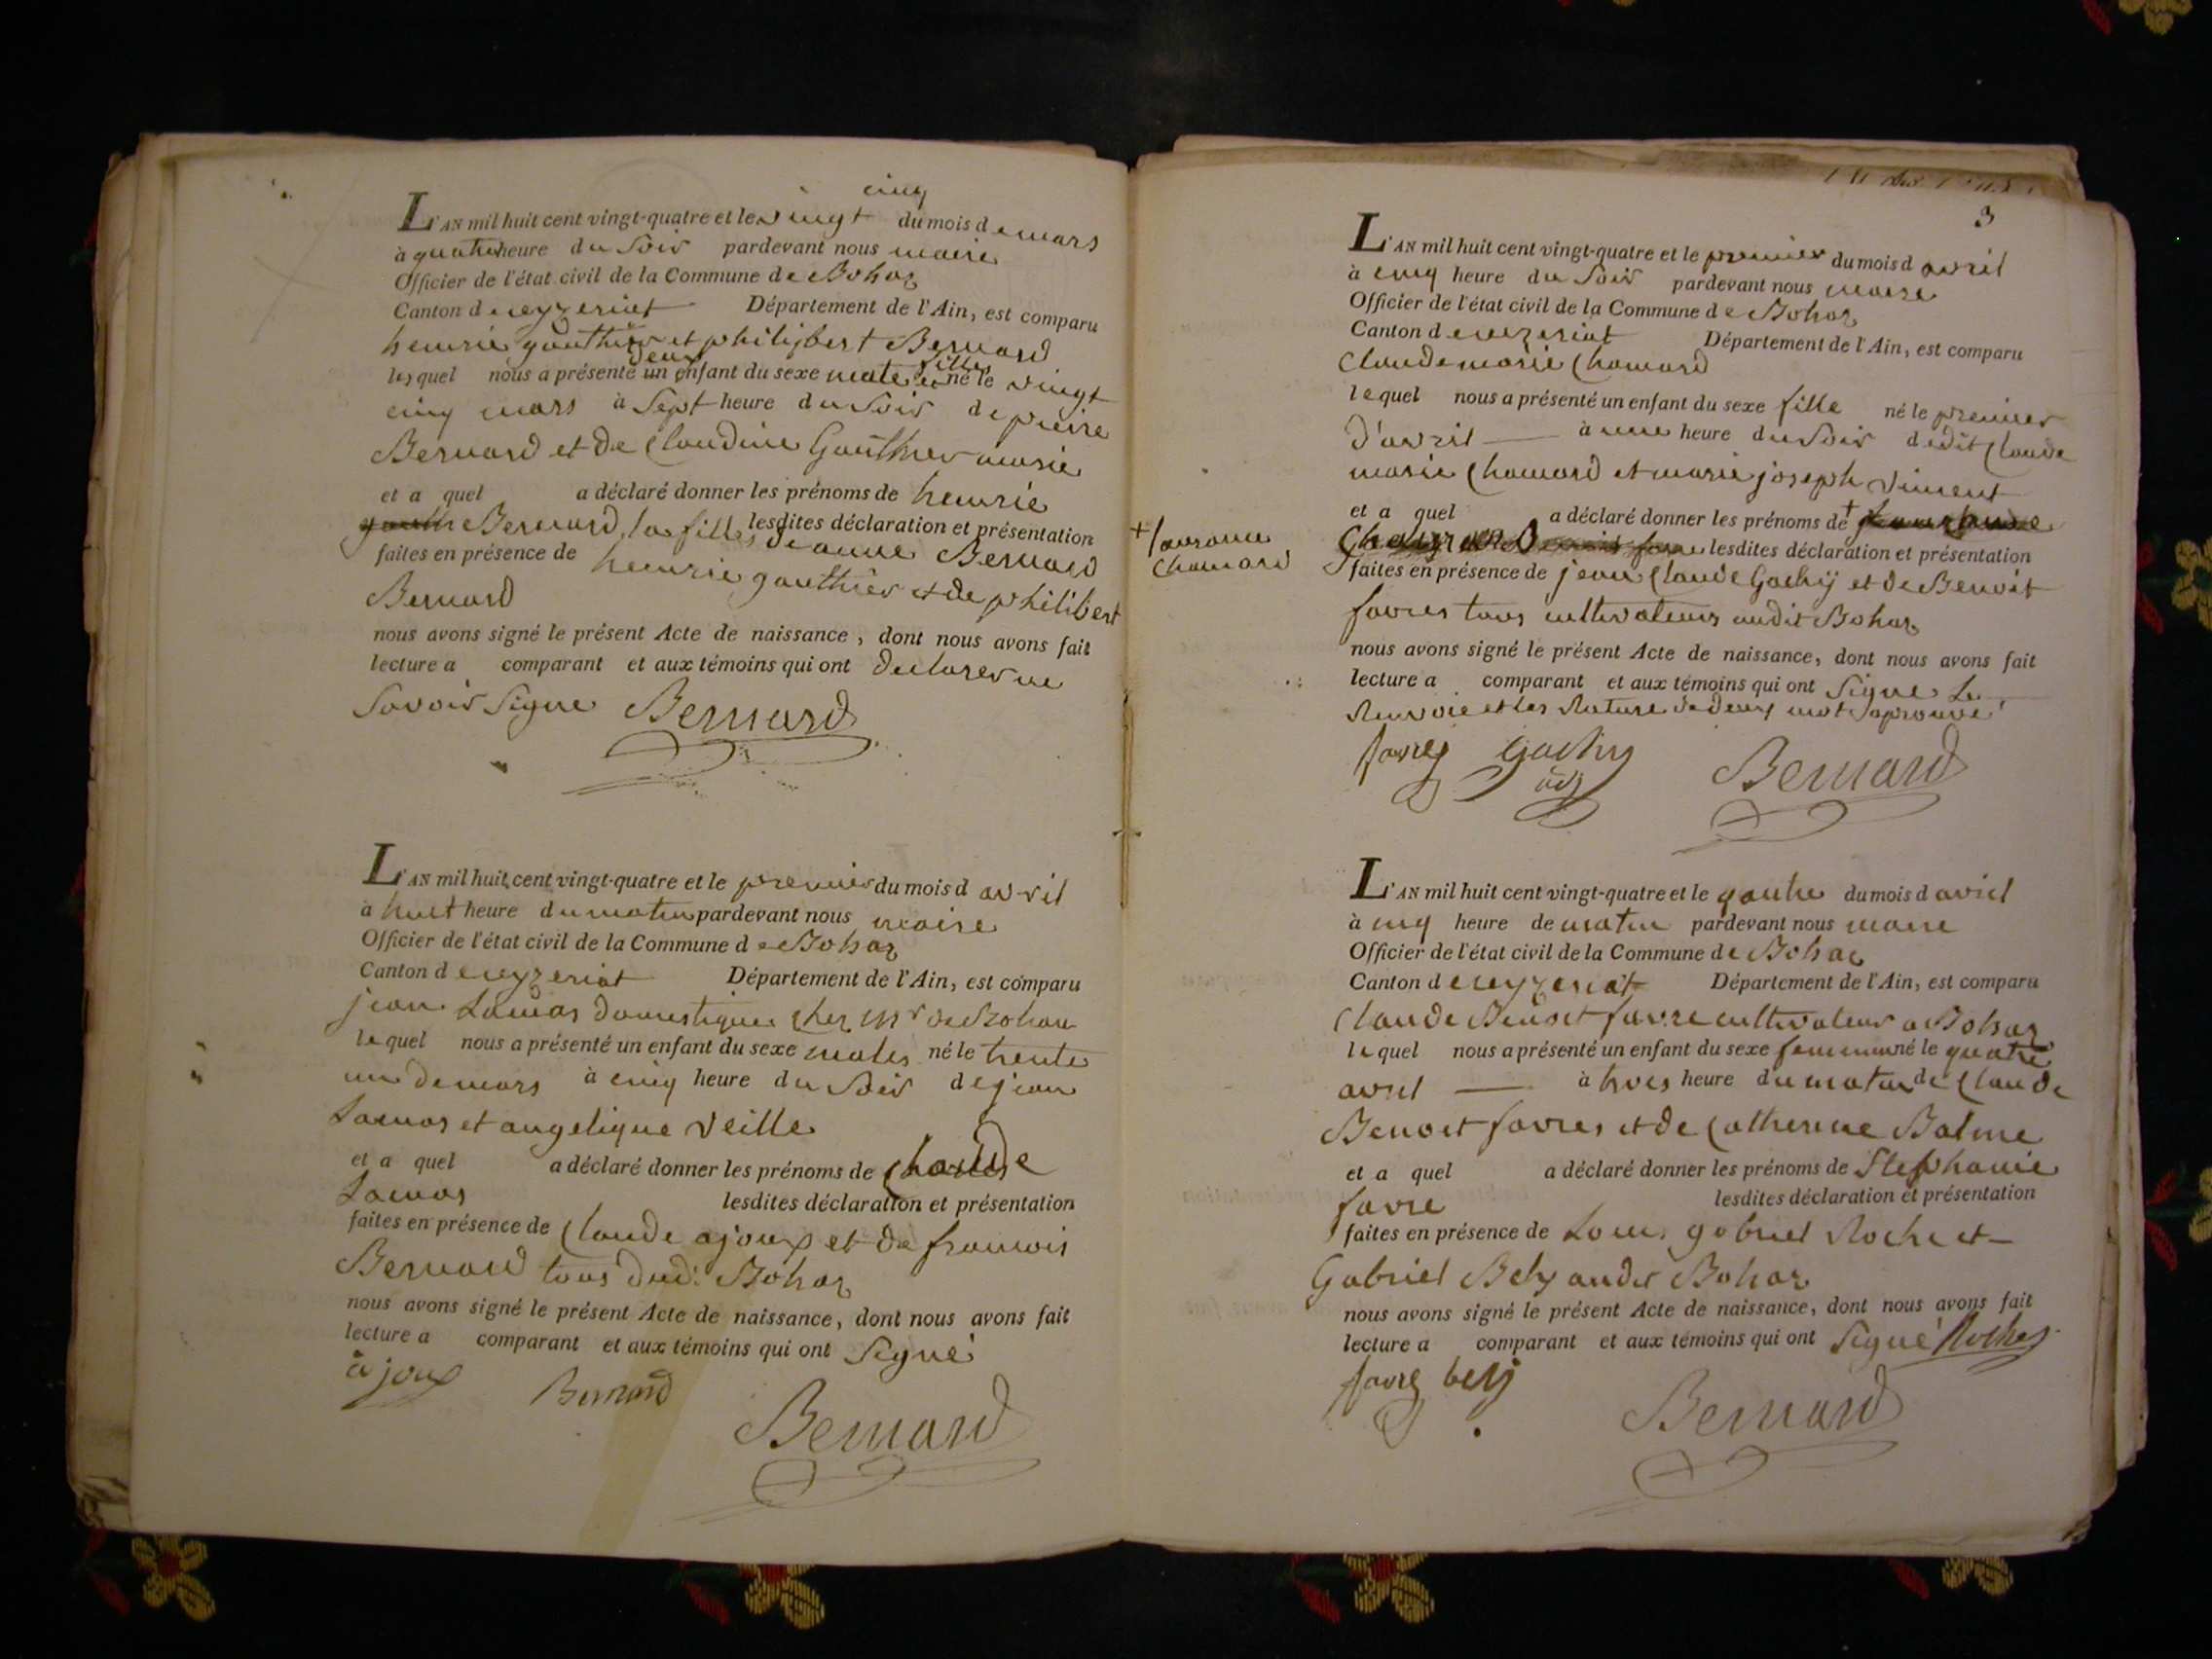 cinq
L'AN mil huit cent vingt-quatre et le vingt du mois de mars
à quatre heure du Soir pardevant nous maire
Officier de l'état civil de la Commune de Bohas
Canton de ceyzeriat Département de l'Ain, est comparu
henrie gauthier et philibert Bernard
deux fille
lesquel nous a présenté un enfant du sexe male et né le vingt
cinq mars à Sept heure du Soir de pierre
Bernard et de Claudine Gauthier marie
et a quel a déclaré donner les prénoms de henrie
Bernard, la fille, lesdites déclaration et présentation
jeanne Bernard
faites en présence de henrie gauthier et de philibert
Bernard
nous avons signé le présent Acte de naissance, dont nous avons fait
lecture a comparant et aux témoins qui ont declarer ne
Savoir Signe Bernard
L'AN mil huit cent vingt-quatre et le premier du mois d avril
à huit heure du matin pardevant nous maire
Officier de l'état civil de la Commune de Bohas
Canton de ceyzeriat Département de l'Ain, est comparu
jean Lamas domestique chez Mr de Bohan
lequel nous a présenté un enfant du sexe males né le trente
un de mars à cinq heure du Soir de jean
Lamas et angelique veille
et a quel a déclaré donner les prénoms de Claude
Lamas lesdites déclaration et présentation
faites en présence de Claude ajoux et de francois
Bernard tous dud. Bohas
nous avons signé le présent Acte de naissance, dont nous avons fait
lecture a comparant et aux témoins qui ont Signé
ajoux Bernard
Bernard
3
L'AN mil huit cent vingt-quatre et le premier du mois d avril
à cinq heure du Soir pardevant nous maire
Officier de l'état civil de la Commune de Bohas
Canton de ceyzeriat Département de l'Ain, est comparu
Claude marie Chamard
lequel nous a présenté un enfant du sexe fille né le premier
d'avril à une heure du Soir dedit Claude
marie Chamard et marie joseph vincent
et a quel a déclaré donner les prénoms de +
lesdites déclaration et présentation
+ 
Chamard
faites en présence de jean Claude Gachy et de Benoit
favres tous cultivateurs audit Bohas
nous avons signé le présent Acte de naissance, dont nous avons fait
lecture a comparant et aux témoins qui ont Signe Le
Renvoie et les Rature de deux mot aprouvé
favres Gachy adj Bernard
L'AN mil huit cent vingt-quatre et le quatre du mois d avril
à cinq heure de matin pardevant nous maire
Officier de l'état civil de la Commune de Bohas
Canton de ceyzeriat Département de l'Ain, est comparu
Claude Benoit favre cultivateur a Bohas
lequel nous a présenté un enfant du sexe feminin né le quatre
avril à trois heure du matin de Claude
Benoit favres et de Catherine Balme
et a quel a déclaré donner les prénoms de Stephanie
favre lesdites déclaration et présentation
faites en présence de Louis gabriel Roche et
Gabriel Bely audit Bohas
nous avons signé le présent Acte de naissance, dont nous avons fait
lecture a comparant et aux témoins qui ont Signé Roche
favre bely
Bernard